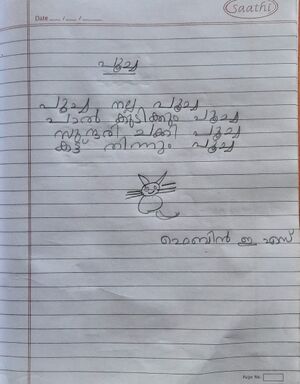 Saathi
Date ..../..../....
പൂച്ച
പൂച്ച നല്ല പൂച്ച
പാൽ കുടിക്കും പൂച്ച
സുന്ദരി ചക്കി പൂച്ച
കട്ട് തിന്നും പൂച്ച
ഫെബിൻ ഇ എസ്
Page No: